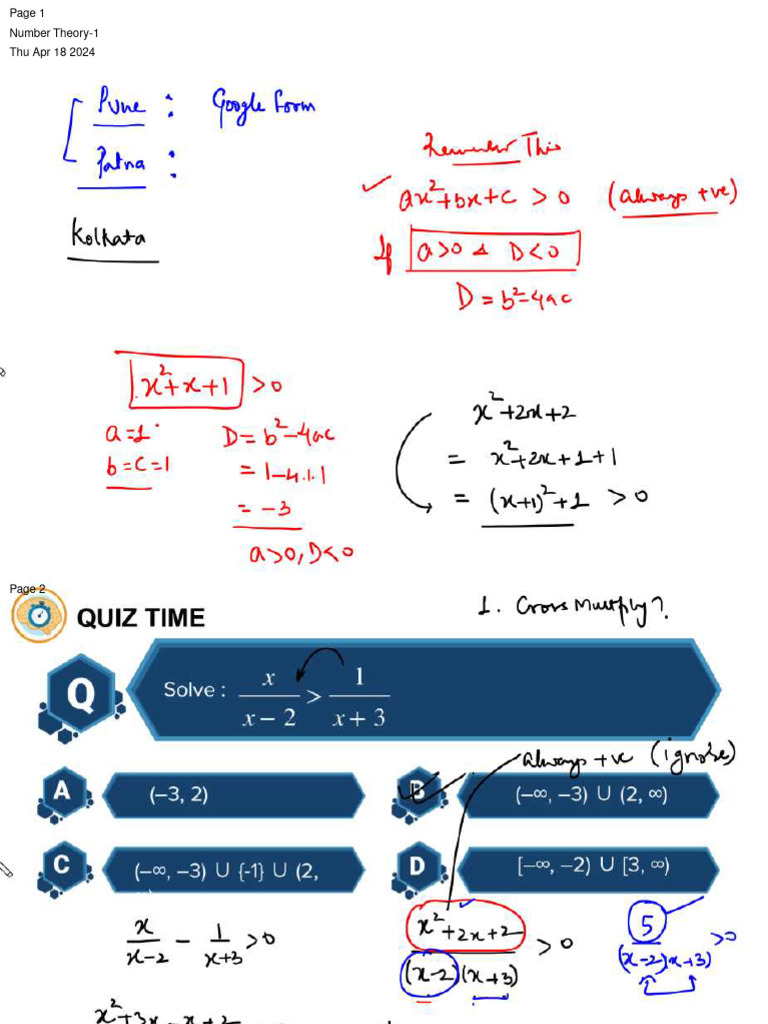 Page 1
Number Theory-1
Thu Apr 18 2024
Pune : Google Form
Patna :
Kolkata
Remember This
ax²+bx+c > 0 (always +ve)
If a>0 & D<0
D = b²-4ac
x²+x+1 > 0
a=1
b=c=1
D = b²-4ac
= 1-4.1.1
= -3
a>0, D<0
x²+2x+2
= x²+2x+1+1
= (x+1)²+1 > 0
Page 2
QUIZ TIME
1. Cross Multiply?
Q
Solve : x/(x-2) > 1/(x+3)
always +ve (ignore)
A (-3, 2)
B (-∞, -3) ∪ (2, ∞)
C (-∞, -3) ∪ {-1} ∪ (2,
D [-∞, -2) ∪ [3, ∞)
x/(x-2) - 1/(x+3) > 0
(x²+2x+2)/((x-2)(x+3)) > 0
5/((x-2)(x+3)) > 0